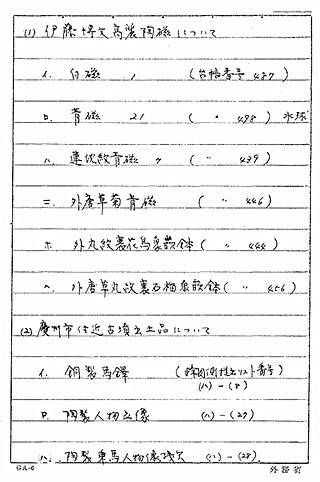 (1) 伊藤博文高麗陶磁について
イ. 白磁 1 (台帳番号 487)
ロ. 青磁 21 ( 〃 498) 水球
ハ. 蓮花紋青磁 7 ( 〃 439)
ニ. 外唐草菊青磁 ( 〃 446)
ホ. 外丸紋裏花鳥象嵌鉢 ( 〃 444)
ヘ. 外唐草丸紋裏石榴象嵌鉢 ( 〃 456)
(2) 慶州市付近古墳出土品について
イ. 銅製馬鐸 (韓国側提出リスト番号)
(ハ)-(8)
ロ. 陶製人物立像 (ハ)-(27)
ハ. 陶製乗馬人物像残欠 (ハ)-(28)
GA-6
外務省